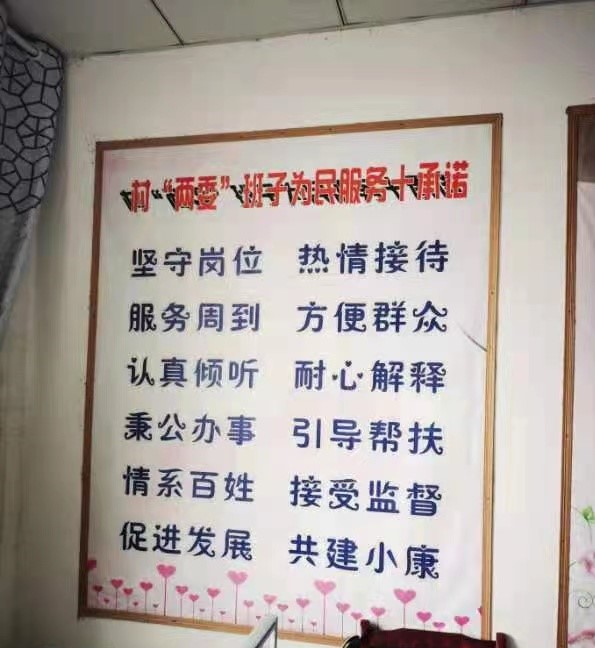 村“两委”班子为民服务十承诺
坚守岗位 热情接待
服务周到 方便群众
认真倾听 耐心解释
秉公办事 引导帮扶
情系百姓 接受监督
促进发展 共建小康